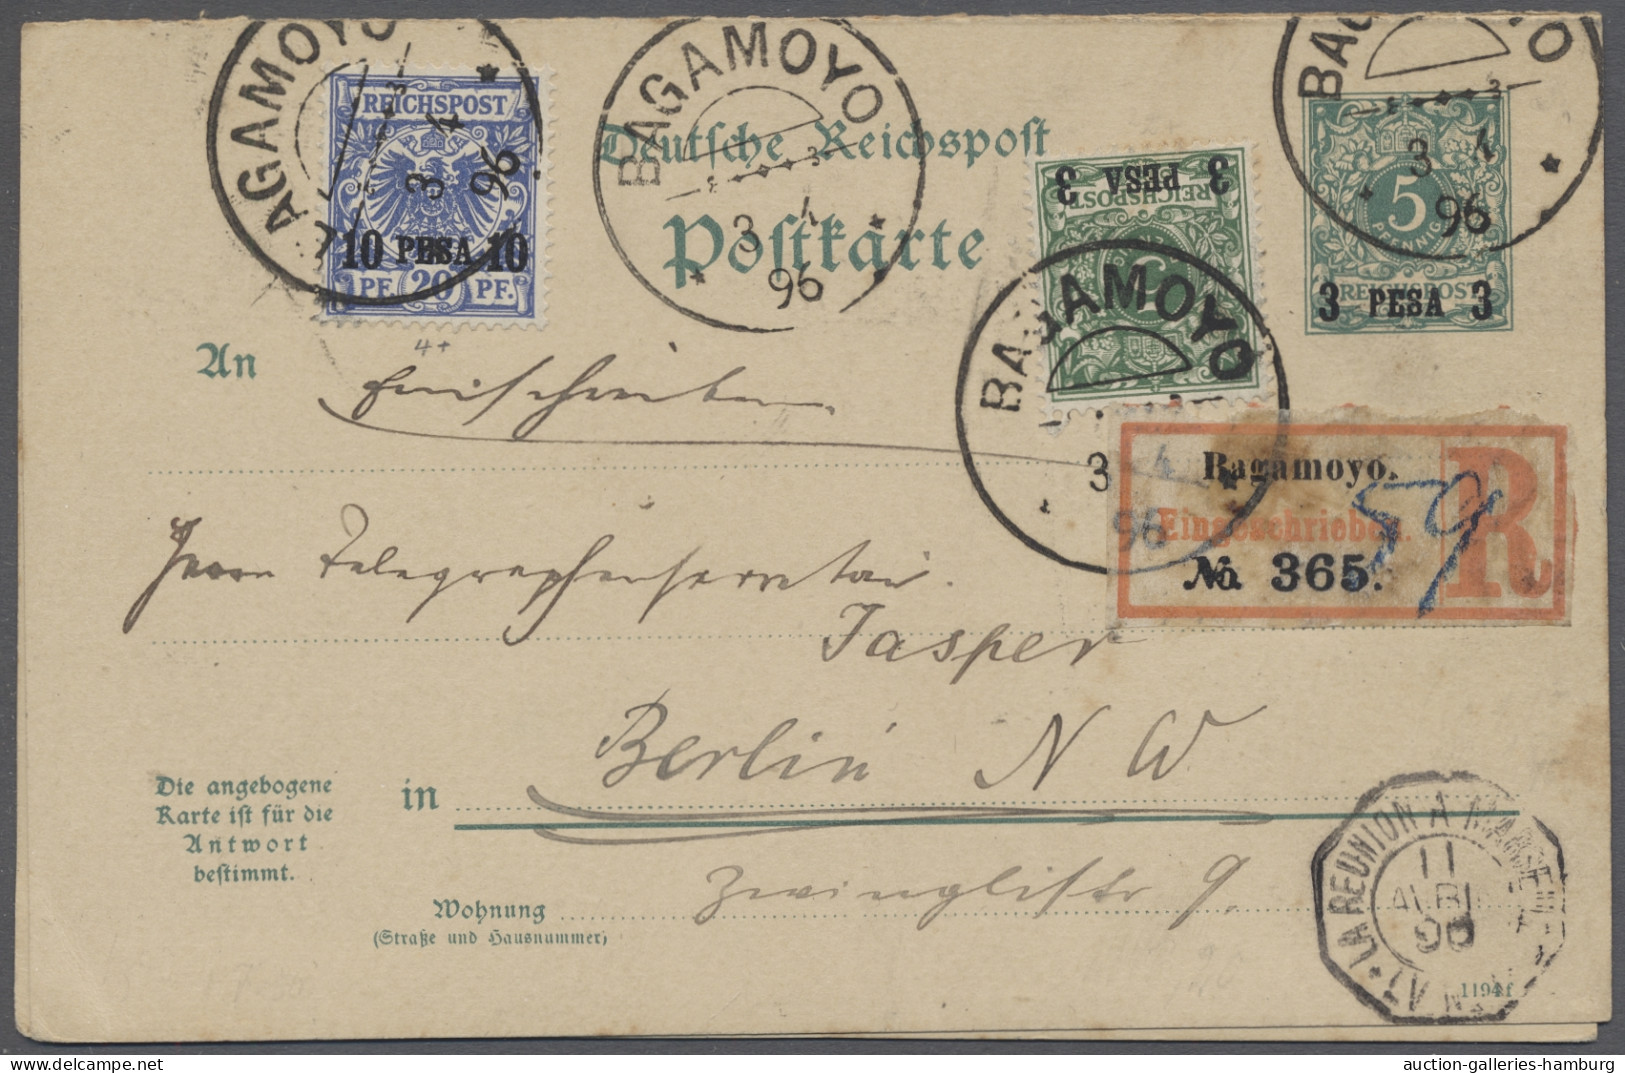 BAGAMOYO
3 4
96
REICHSPOST
10 PESA 10
PF. 20 PF.
4+
BAGAMOYO
3 4
96
Deutsche Reichspost
Postkarte
3 PESA 3
REICHSPOST
5
BAGAMOYO
3 4
96
BAGAMOYO
3 4
96
5
PFENNIG
REICHSPOST
3 PESA 3
An
Einschreiben
Bagamoyo.
Eingeschrieben.
R
No. 365.
59
Herrn Telegraphensecretair
Jasper
in Berlin N W
Die angebogene
Karte ist für die
Antwort
bestimmt.
Wohnung Zwinglistr 9.
(Straße und Hausnummer)
LA REUNION A MARSEILLE
11
AVRIL
96
1194f
auction-galleries-hamburg